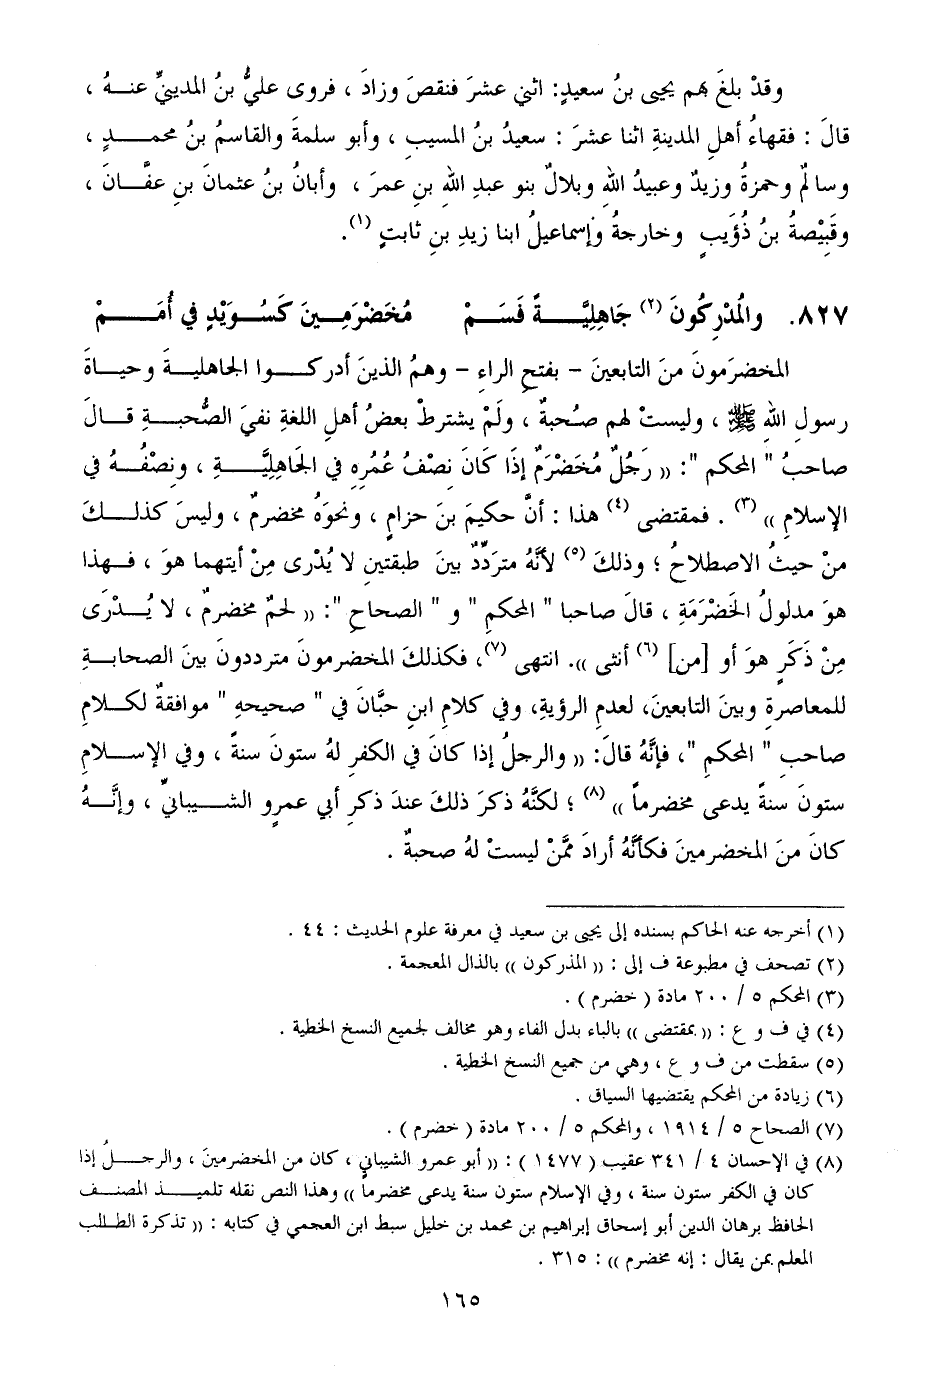 وقدْ بلغَ بهم يحيى بنُ سعيدٍ: اثني عشرَ فنقصَ وزادَ ، فروى عليُّ بنُ المدينيِّ عنهُ ،
قالَ : فقهاءُ أهلِ المدينةِ اثنا عشرَ : سعيدُ بنُ المسيبِ ، وأبو سلمةَ والقاسمُ بنُ محمدٍ ،
وسالمٌ وحمزةُ وزيدٌ وعبيدُ اللهِ وبلالٌ بنو عبدِ اللهِ بنِ عمرَ ، وأبانُ بنُ عثمانَ بنِ عفَّانَ ،
وقَبِيْصةُ بنُ ذُؤَيبٍ وخارجةُ وإسماعيلُ ابنا زيدِ بنِ ثابتٍ (١).
٨٢٧. والْمُدْرِكُونَ (٢) جَاهِلِيَّةً فَسَمْ مُخَضْرَمِينَ كَسُوَيْدٍ في أُمَمْ
المخضرَمونَ منَ التابعينَ – بفتحِ الراءِ – وهمُ الذينَ أدركوا الجاهليةَ وحياةَ
رسولِ اللهِ ﷺ ، وليستْ لهم صُحبةٌ ، ولَمْ يشترطْ بعضُ أهلِ اللغةِ نفيَ الصُّحبةِ قالَ
صاحبُ " المحكمِ ": (( رَجُلٌ مُخَضْرَمٌ إذَا كَانَ نصْفُ عُمُرِهِ في الجَاهِلِيَّةِ ، ونصْفُهُ في
الإسلامِ )) (٣) . فمقتضى (٤) هذا : أنَّ حكيمَ بنَ حزامٍ ، ونحوَهُ مخضرمٌ ، وليسَ كذلكَ
منْ حيثُ الاصطلاحُ ؛ وذلكَ (٥) لأنَّهُ متردِّدٌ بينَ طبقتينِ لا يُدْرى مِنْ أيتهما هوَ ، فهذا
هوَ مدلولُ الخَضْرَمَةِ ، قالَ صاحبا " المحكمِ " و " الصحاحِ ": (( لحمٌ مخضرمٌ ، لا يُدْرَى
مِنْ ذَكَرٍ هوَ أو [من] (٦) أنثى )). انتهى (٧)، فكذلكَ المخضرمونَ مترددونَ بينَ الصحابةِ
للمعاصرةِ وبينَ التابعينَ، لعدمِ الرؤيةِ، وفي كلامِ ابنِ حبَّانَ في " صحيحهِ " موافقةٌ لكلامِ
صاحبِ " المحكمِ "، فإنَّهُ قالَ: (( والرجلُ إذا كانَ في الكفرِ لهُ ستونَ سنةً ، وفي الإسلامِ
ستونَ سنةً يدعى مخضرماً )) (٨) ؛ لكنَّهُ ذكرَ ذلكَ عندَ ذكرِ أبي عمرٍو الشيبانيِّ ، وإنَّهُ
كانَ منَ المخضرمينَ فكأنَّهُ أرادَ ممَّنْ ليستْ لهُ صحبةٌ .
(١) أخرجه عنه الحاكم بسنده إلى يحيى بن سعيد في معرفة علوم الحديث : ٤٤ .
(٢) تصحف في مطبوعة ف إلى : (( المذركون )) بالذال المعجمة .
(٣) المحكم ٥ / ٢٠٠ مادة ( خضرم ) .
(٤) في ف و ع : (( بمقتضى )) بالباء بدل الفاء وهو مخالف لجميع النسخ الخطية .
(٥) سقطت من ف و ع ، وهي من جميع النسخ الخطية .
(٦) زيادة من المحكم يقتضيها السياق .
(٧) الصحاح ٥ / ١٩١٤ ، والمحكم ٥ / ٢٠٠ مادة ( خضرم ) .
(٨) في الإحسان ٤ / ٣٤١ عقيب ( ١٤٧٧ ) : (( أبو عمرو الشيباني ، كان من المخضرمينَ ، والرجلُ إذا
كان في الكفر ستون سنة ، وفي الإسلام ستون سنة يدعى مخضرماً )) وهذا النص نقله تلميذ المصنف
الحافظ برهان الدين أبو إسحاق إبراهيم بن محمد بن خليل سبط ابن العجمي في كتابه : (( تذكرة الطالب
المعلم بمن يقال : إنه مخضرم )) : ٣١٥ .
١٦٥